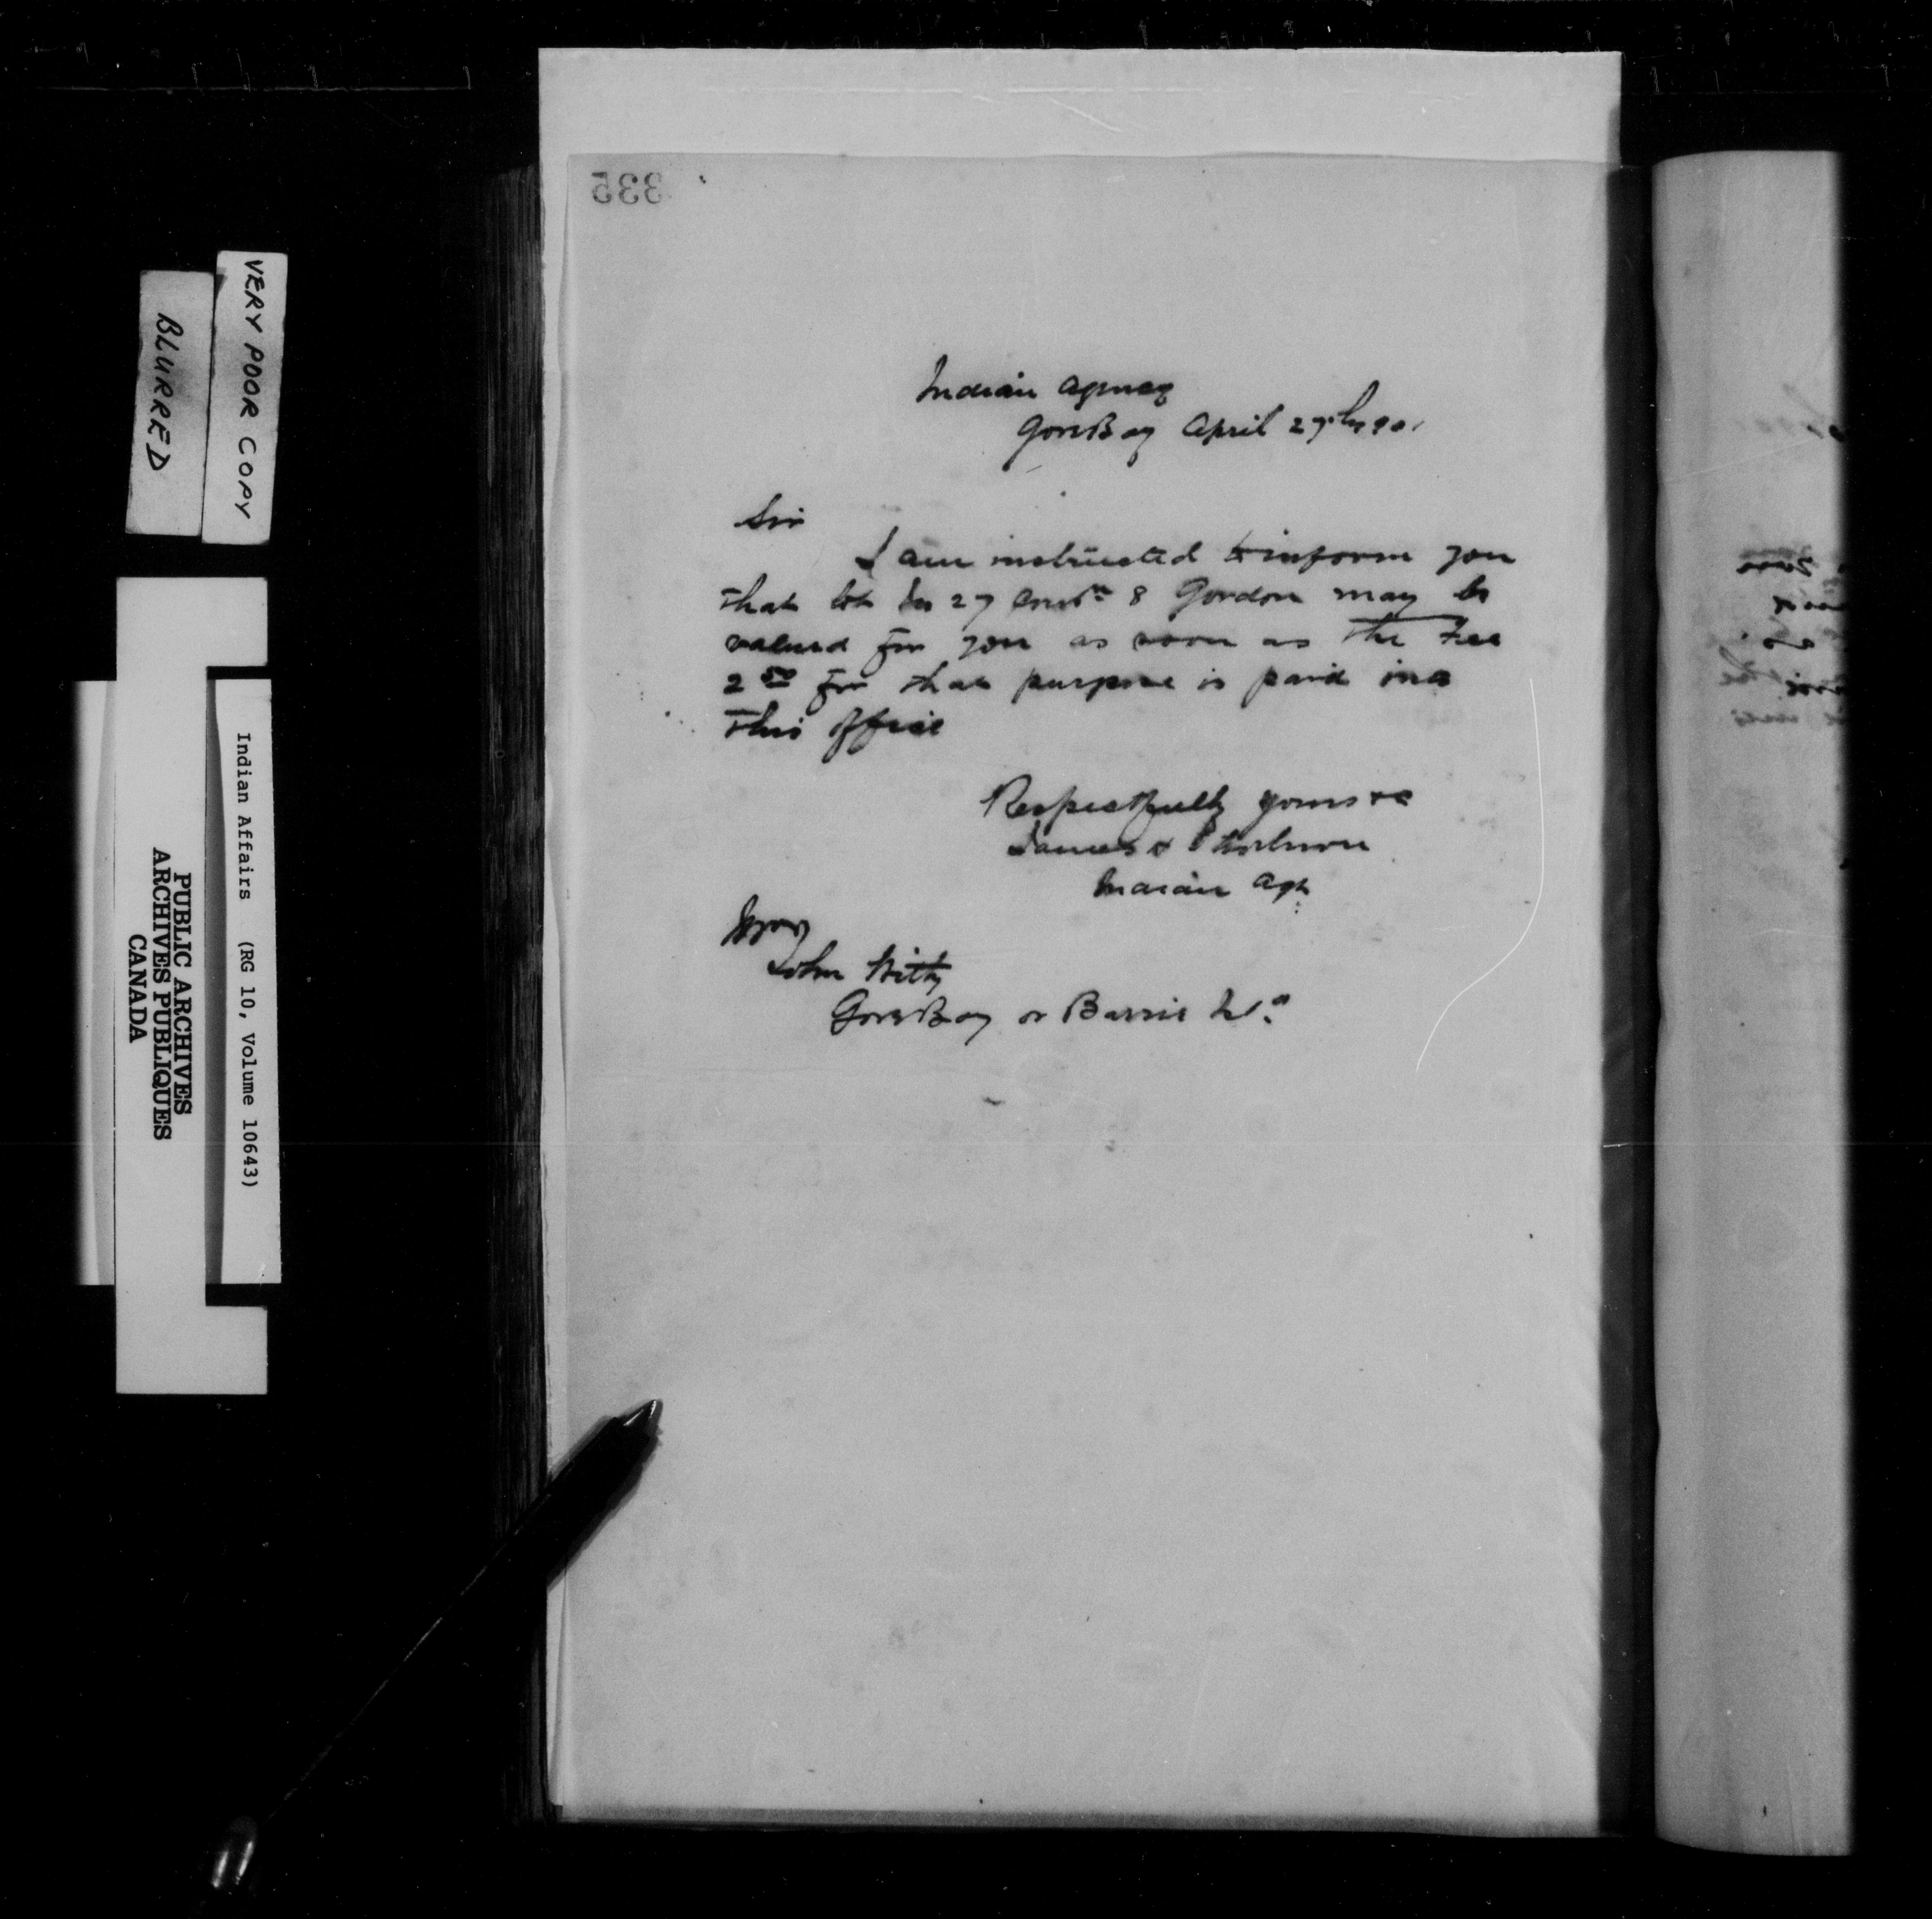 335
Indian Agency
Gore Bay April 27th 1901
Sir
I am instructed to inform you
that lot No 27 Consn 8 Gordon may be
valued for you as soon as the Fee
2 50 for that purpose is paid in a
This office
Respectfully yours &c
James
Indian Agt
John Witty
Gore Bay or Barrie Isd
VERY POOR COPY
BLURRED
Indian Affairs (RG 10, Volume 10643)
PUBLIC ARCHIVES
ARCHIVES PUBLIQUES
CANADA